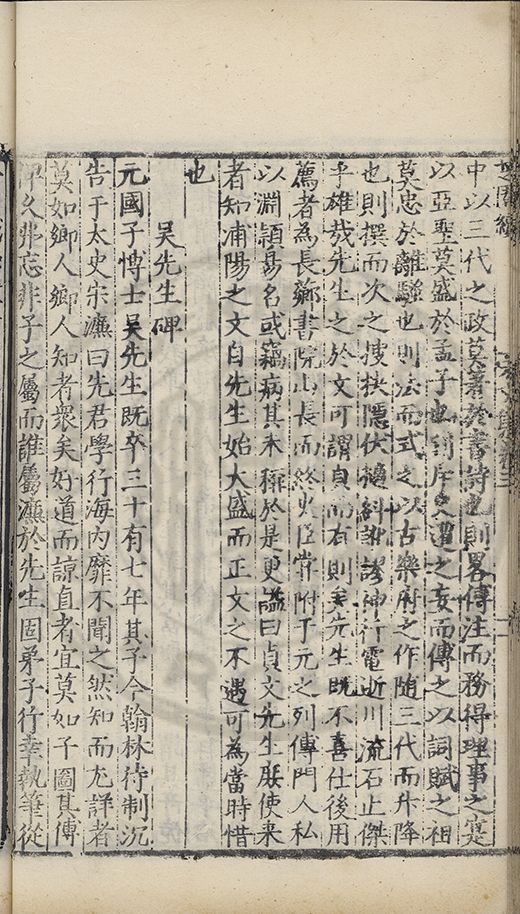 中以三代之政莫著於書詩也則畧傳注而務得理事之寔
以亞聖莫盛於孟子也則斥史遷之妄而傳之以詞賦之祖
莫忠於離騷也則法而式之以古樂府之作隨三代而升降
也則撰而次之搜抉隱伏繩糾訛謬神行電逝川流石止傑
乎雄哉先生之於文可謂貞而有則矣先生既不喜仕後用
薦者為長薌書院山長而終史臣甞附于元之列傳門人私
以淵頴昜名或竊病其未稱於是更謚曰貞文先生朘使来
者知浦陽之文自先生始大盛而正文之不遇可為當時惜
也
吳先生碑
元國子愽士吳先生既卒三十有七年其子今翰林待制沉
告于太史宋濂曰先君學行海内靡不聞之然知而尤詳者
莫如鄉人鄉人知者衆矣好道而諒直者宜莫如子圖其傳
久弗忘非子之屬而誰屬濂於先生固弟子行幸執筆從